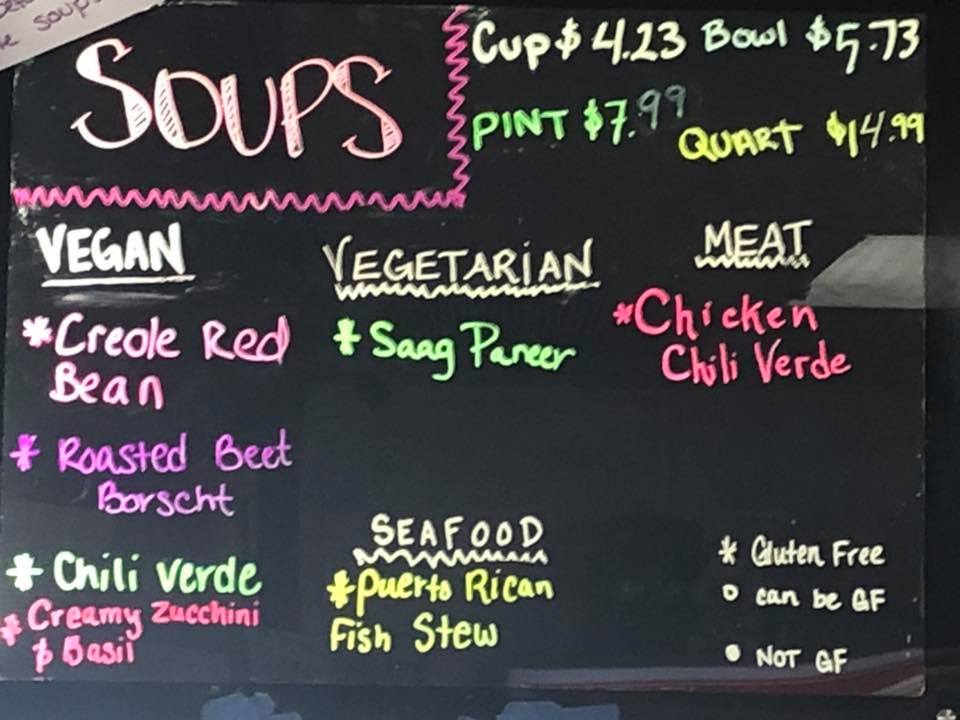 soups
SOUPS
Cup $4.23 Bowl $5.73
PINT $7.99 QUART $14.99
VEGAN
* Creole Red
Bean
* Roasted Beet
Borscht
* Chili verde
* Creamy Zucchini
& Basil
VEGETARiAN
* Saag Paneer
SEAFOOD
* Puerto Rican
Fish Stew
MEAT
* Chicken
Chili Verde
* Gluten Free
○ can be GF
● NOT GF